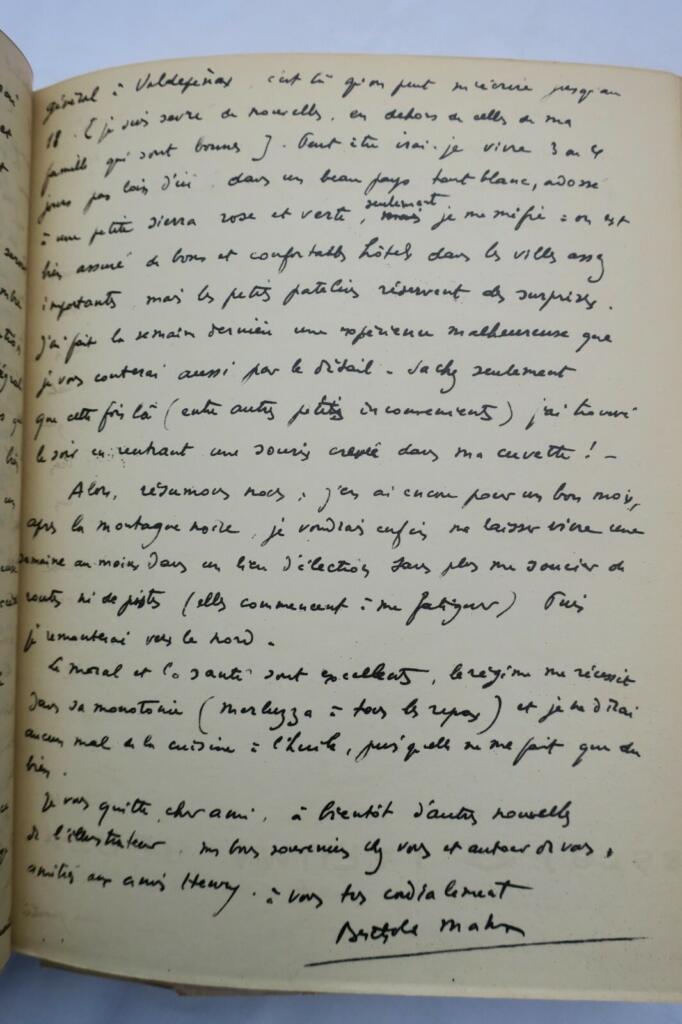 général à Valdepeñas c'est là qu'on peut m'écrire jusqu'au
18. [je suis sevré de nouvelles, en dehors de celles de ma
famille qui sont bonnes]. Peut être irai-je vivre 3 ou 4
jours pas loin d'ici, dans un beau pays tout blanc, adossé
à une petite sierra rose et verte, seulement mais je me méfie : on est
bien assuré de bons et confortables hôtels dans les villes assez
importants mais les petits patelins réservent des surprises.
J'ai fait la semaine dernière une expérience malheureuse que
je vous conterai aussi par le détail - Sachez seulement
que cette fois là (entre autres petits inconvenients) j'ai trouvé
le soir en rentrant une souris crevée dans ma cuvette ! -
Alors, résumons nous : j'en ai encore pour un bon mois,
après la montagne noire, je voudrais enfin me laisser vivre une
semaine au moins dans un lieu d'élection sans plus me soucier de
routes ni de pistes (elles commencent à me fatiguer) Puis
je remonterai vers le nord.
Le moral et la santé sont excellents, le régime me réussit
dans sa monotonie (merluzza à tous les repas) et je ne dirai
aucun mal de la cuisine à l'huile, puisqu'elle ne me fait que du
bien.
Je vous quitte, cher ami, à bientôt d'autres nouvelles
de l'illustrateur, mes bons souvenirs chez vous et autour de vous,
amitiés aux amis Henry. à vous très cordialement
Berthold Mahn